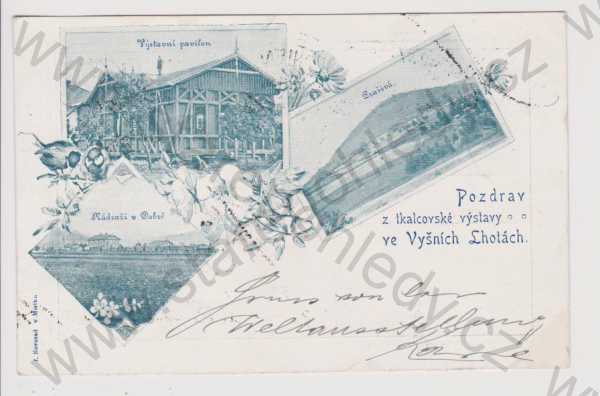 Výstavní pavilon
Prašivá
Nádraží v Dobré
Pozdrav
z tkalcovské výstavy
ve Vyšních Lhotách.
Gruss von der
Weltausstellung
www.staropohledy.cz